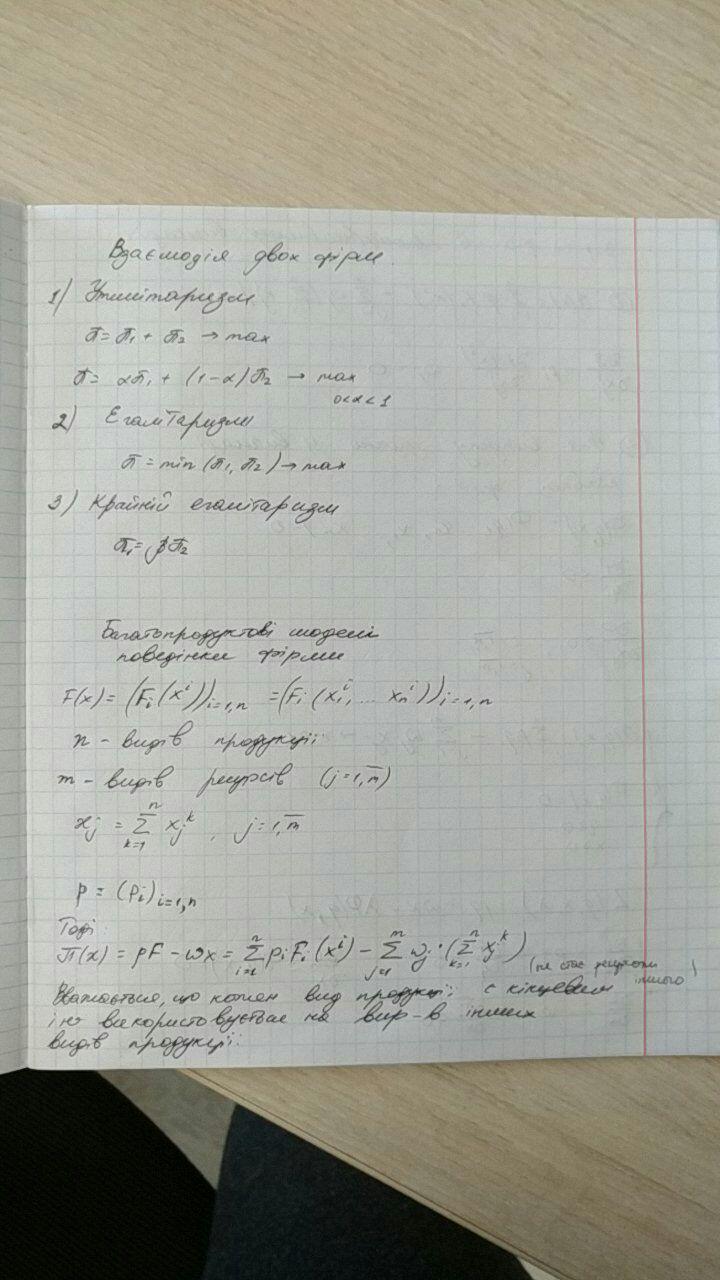 Взаємодія двох фірм.
1) Утилітаризм
П = П₁ + П₂ → max
П = αП₁ + (1-α)П₂ → max
0<α<1
2) Егалітаризм
П = min (П₁, П₂) → max
3) Крайній егалітаризм
П₁ = βП₂
Багатопродуктові моделі
поведінки фірми
F(x) = (Fᵢ(xⁱ))ᵢ₌₁,ₙ = (Fᵢ(x₁ⁱ, ... xₙⁱ))ᵢ₌₁,ₙ
n - видів продукції
m - видів ресурсів (j=1,m̅)
xⱼ = Σₖ₌₁ⁿ xⱼᵏ, j=1,m̅
p = (pᵢ)ᵢ₌₁,ₙ
Тоді
П(x) = pF - wx = Σᵢ₌₁ⁿ pᵢFᵢ(xⁱ) - Σⱼ₌₁ᵐ wⱼ · (Σₖ₌₁ⁿ xⱼᵏ)
(не стає ресурсом
Вважається, що кожен вид продукції є кінцевим іншого)
і не використовується на вир-в інших
видів продукції.